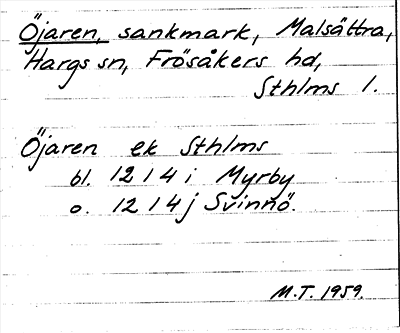 Öjaren, sankmark, Malsättra,
Hargs sn, Frösåkers hd,
Sthlms l.
Öjaren ek Sthlms
bl. 1214 i Myrby
o. 1214 j Svinnö.
M.T. 1959.